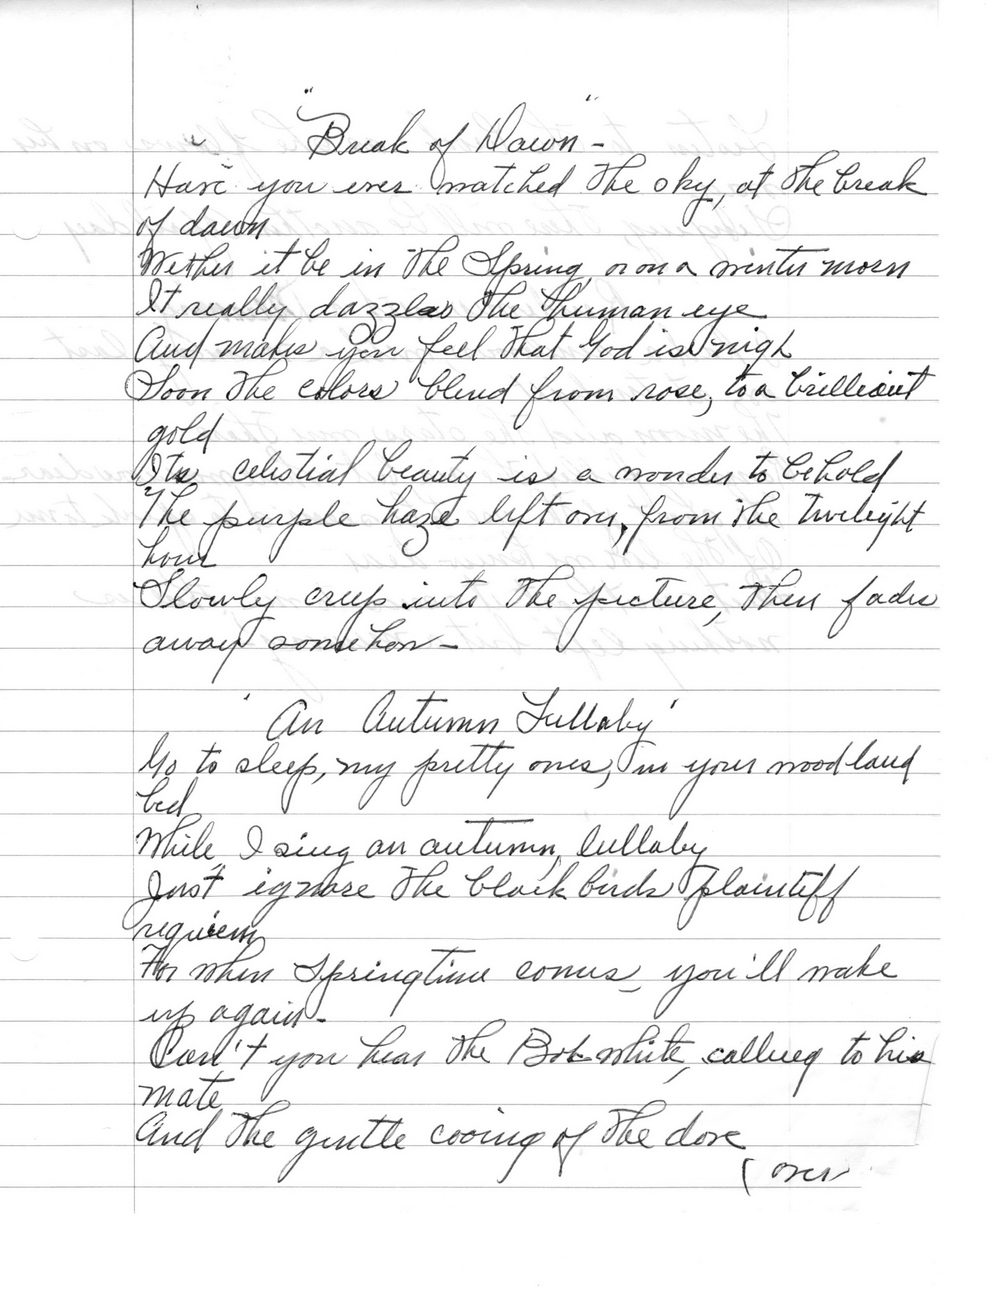 "Break of Dawn" -
Have you ever watched the sky, at the break
of dawn
Wether it be in the Spring, or on a winter morn
It really dazzles the human eye
And makes you feel that God is nigh
Soon the colors blend from rose, to a brilliant
gold
Its celestial beauty is a wonder to behold
The purple haze left over, from the twilight
hour
Slowly creeps into the picture, then fades
away somehow -
'An Autumn Lullaby'
Go to sleep, my pretty ones, in your woodland
bed
While I sing an autumn lullaby
Just ignore the blackbirds plaintiff
requiem
For when Springtime comes, you'll wake
up again -
Can't you hear the Bob white, calling to his
mate
And the gentle cooing of the dove
(over